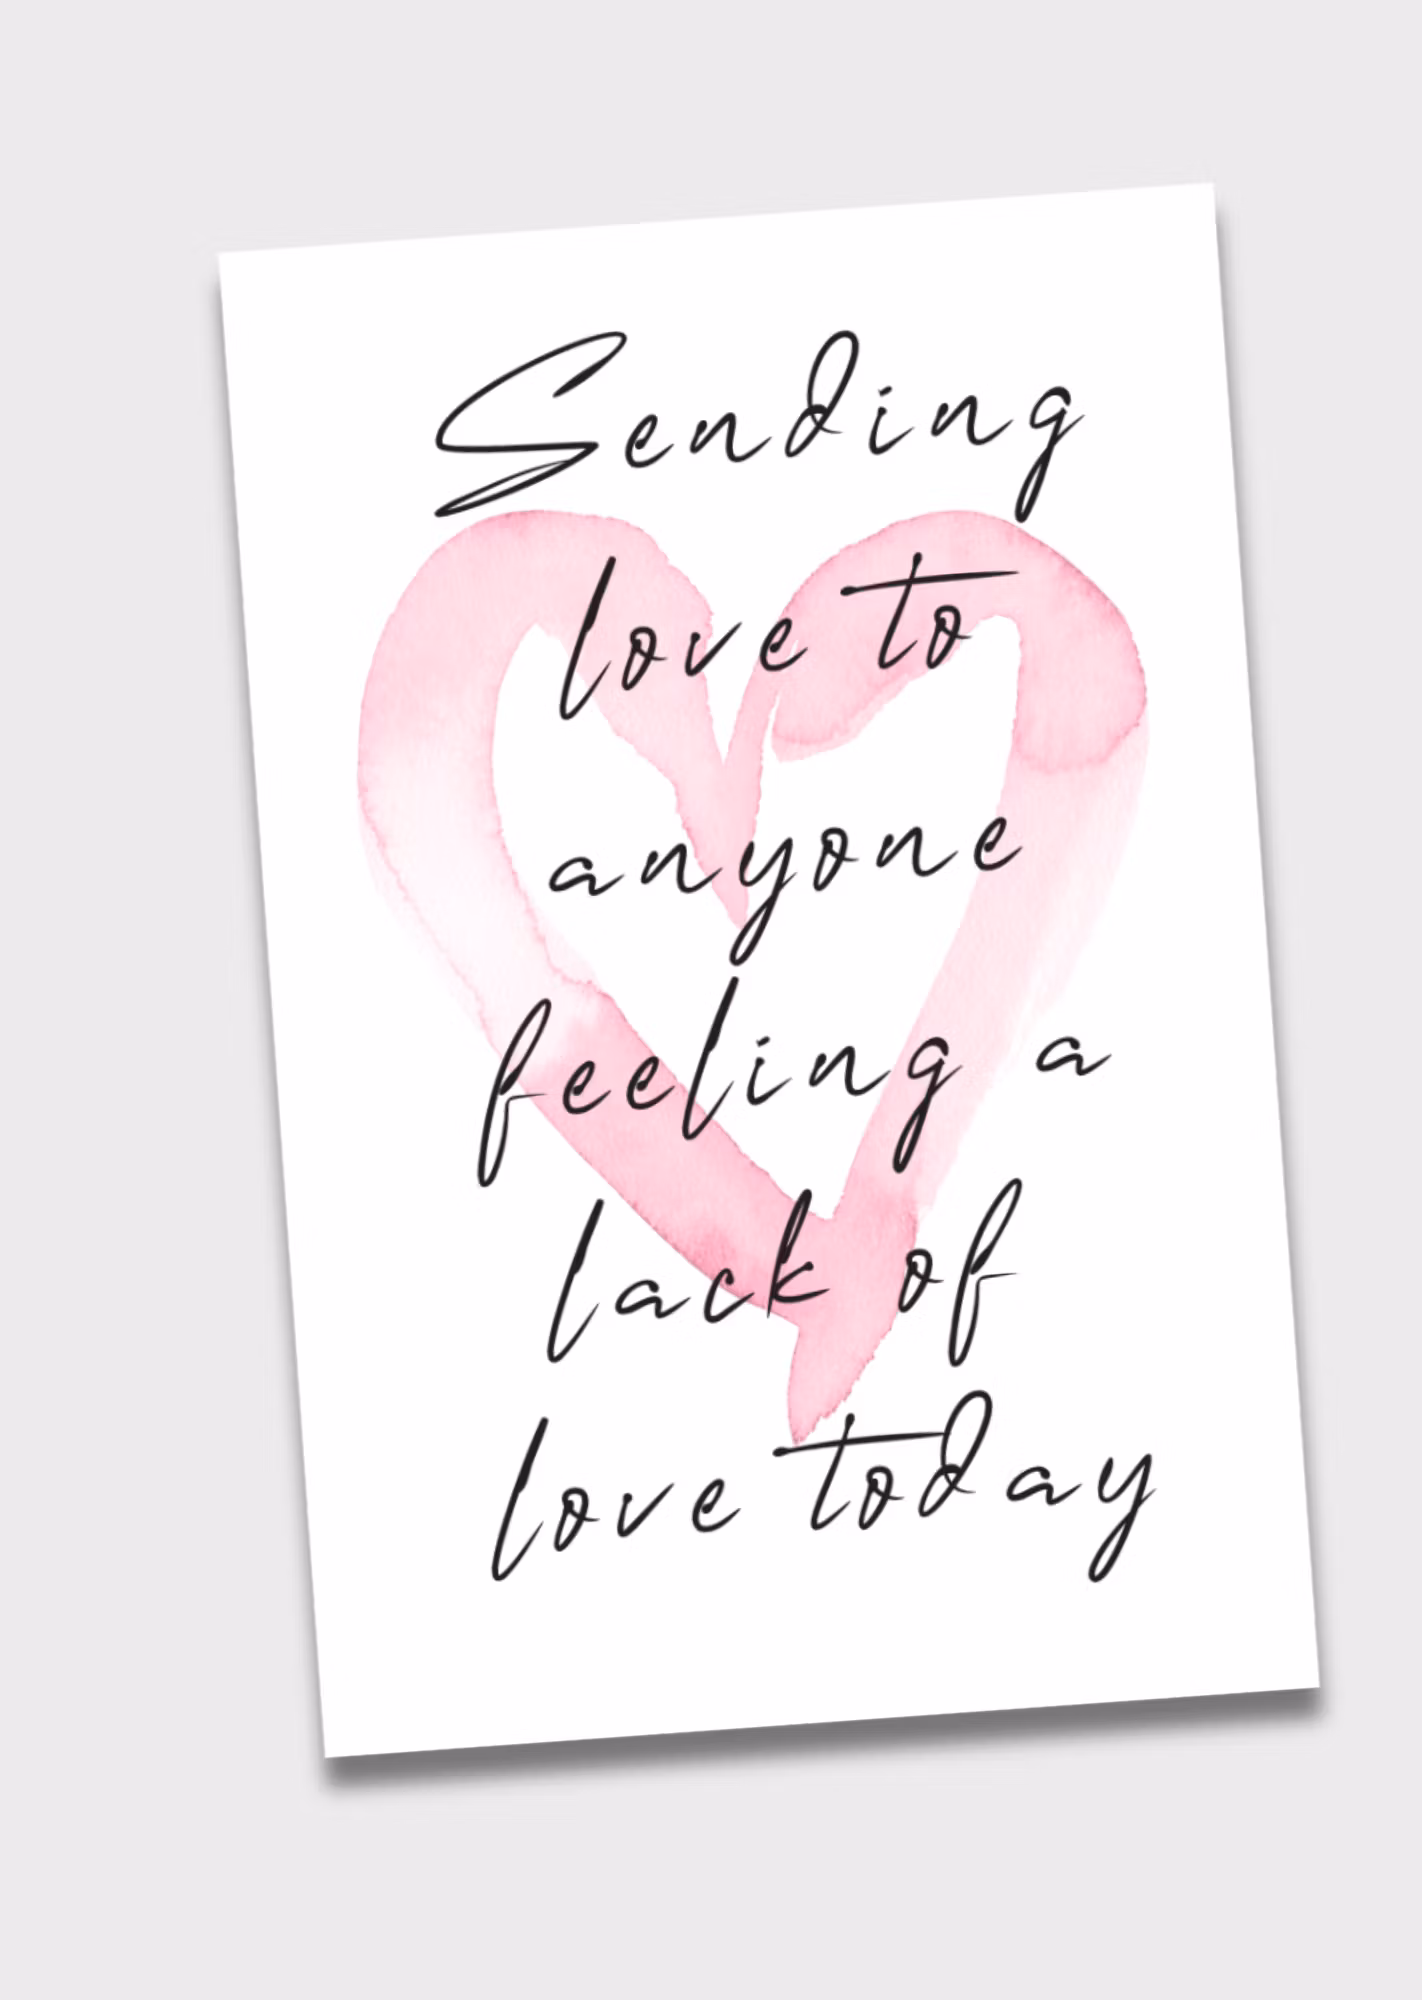 Sending
love to
anyone
feeling a
lack of
love today